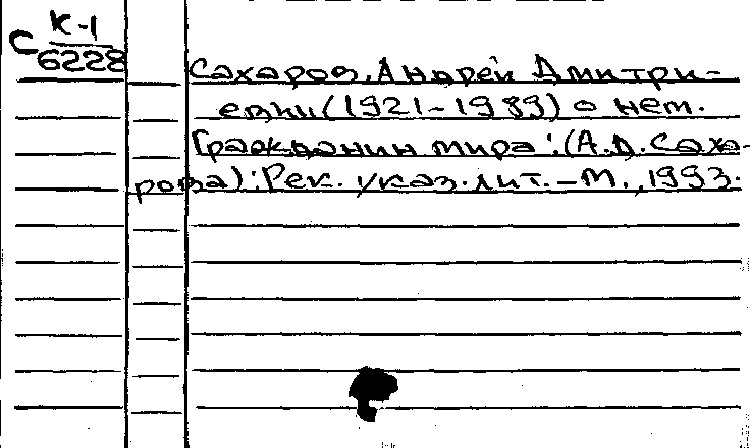 С К-1
6228
Сахаров, Андрей Дмитри-
евич (1921-1989) о нем.
Гражданин мира: (А.Д. Саха-
рова): Рек. указ. лит. - М., 1993.